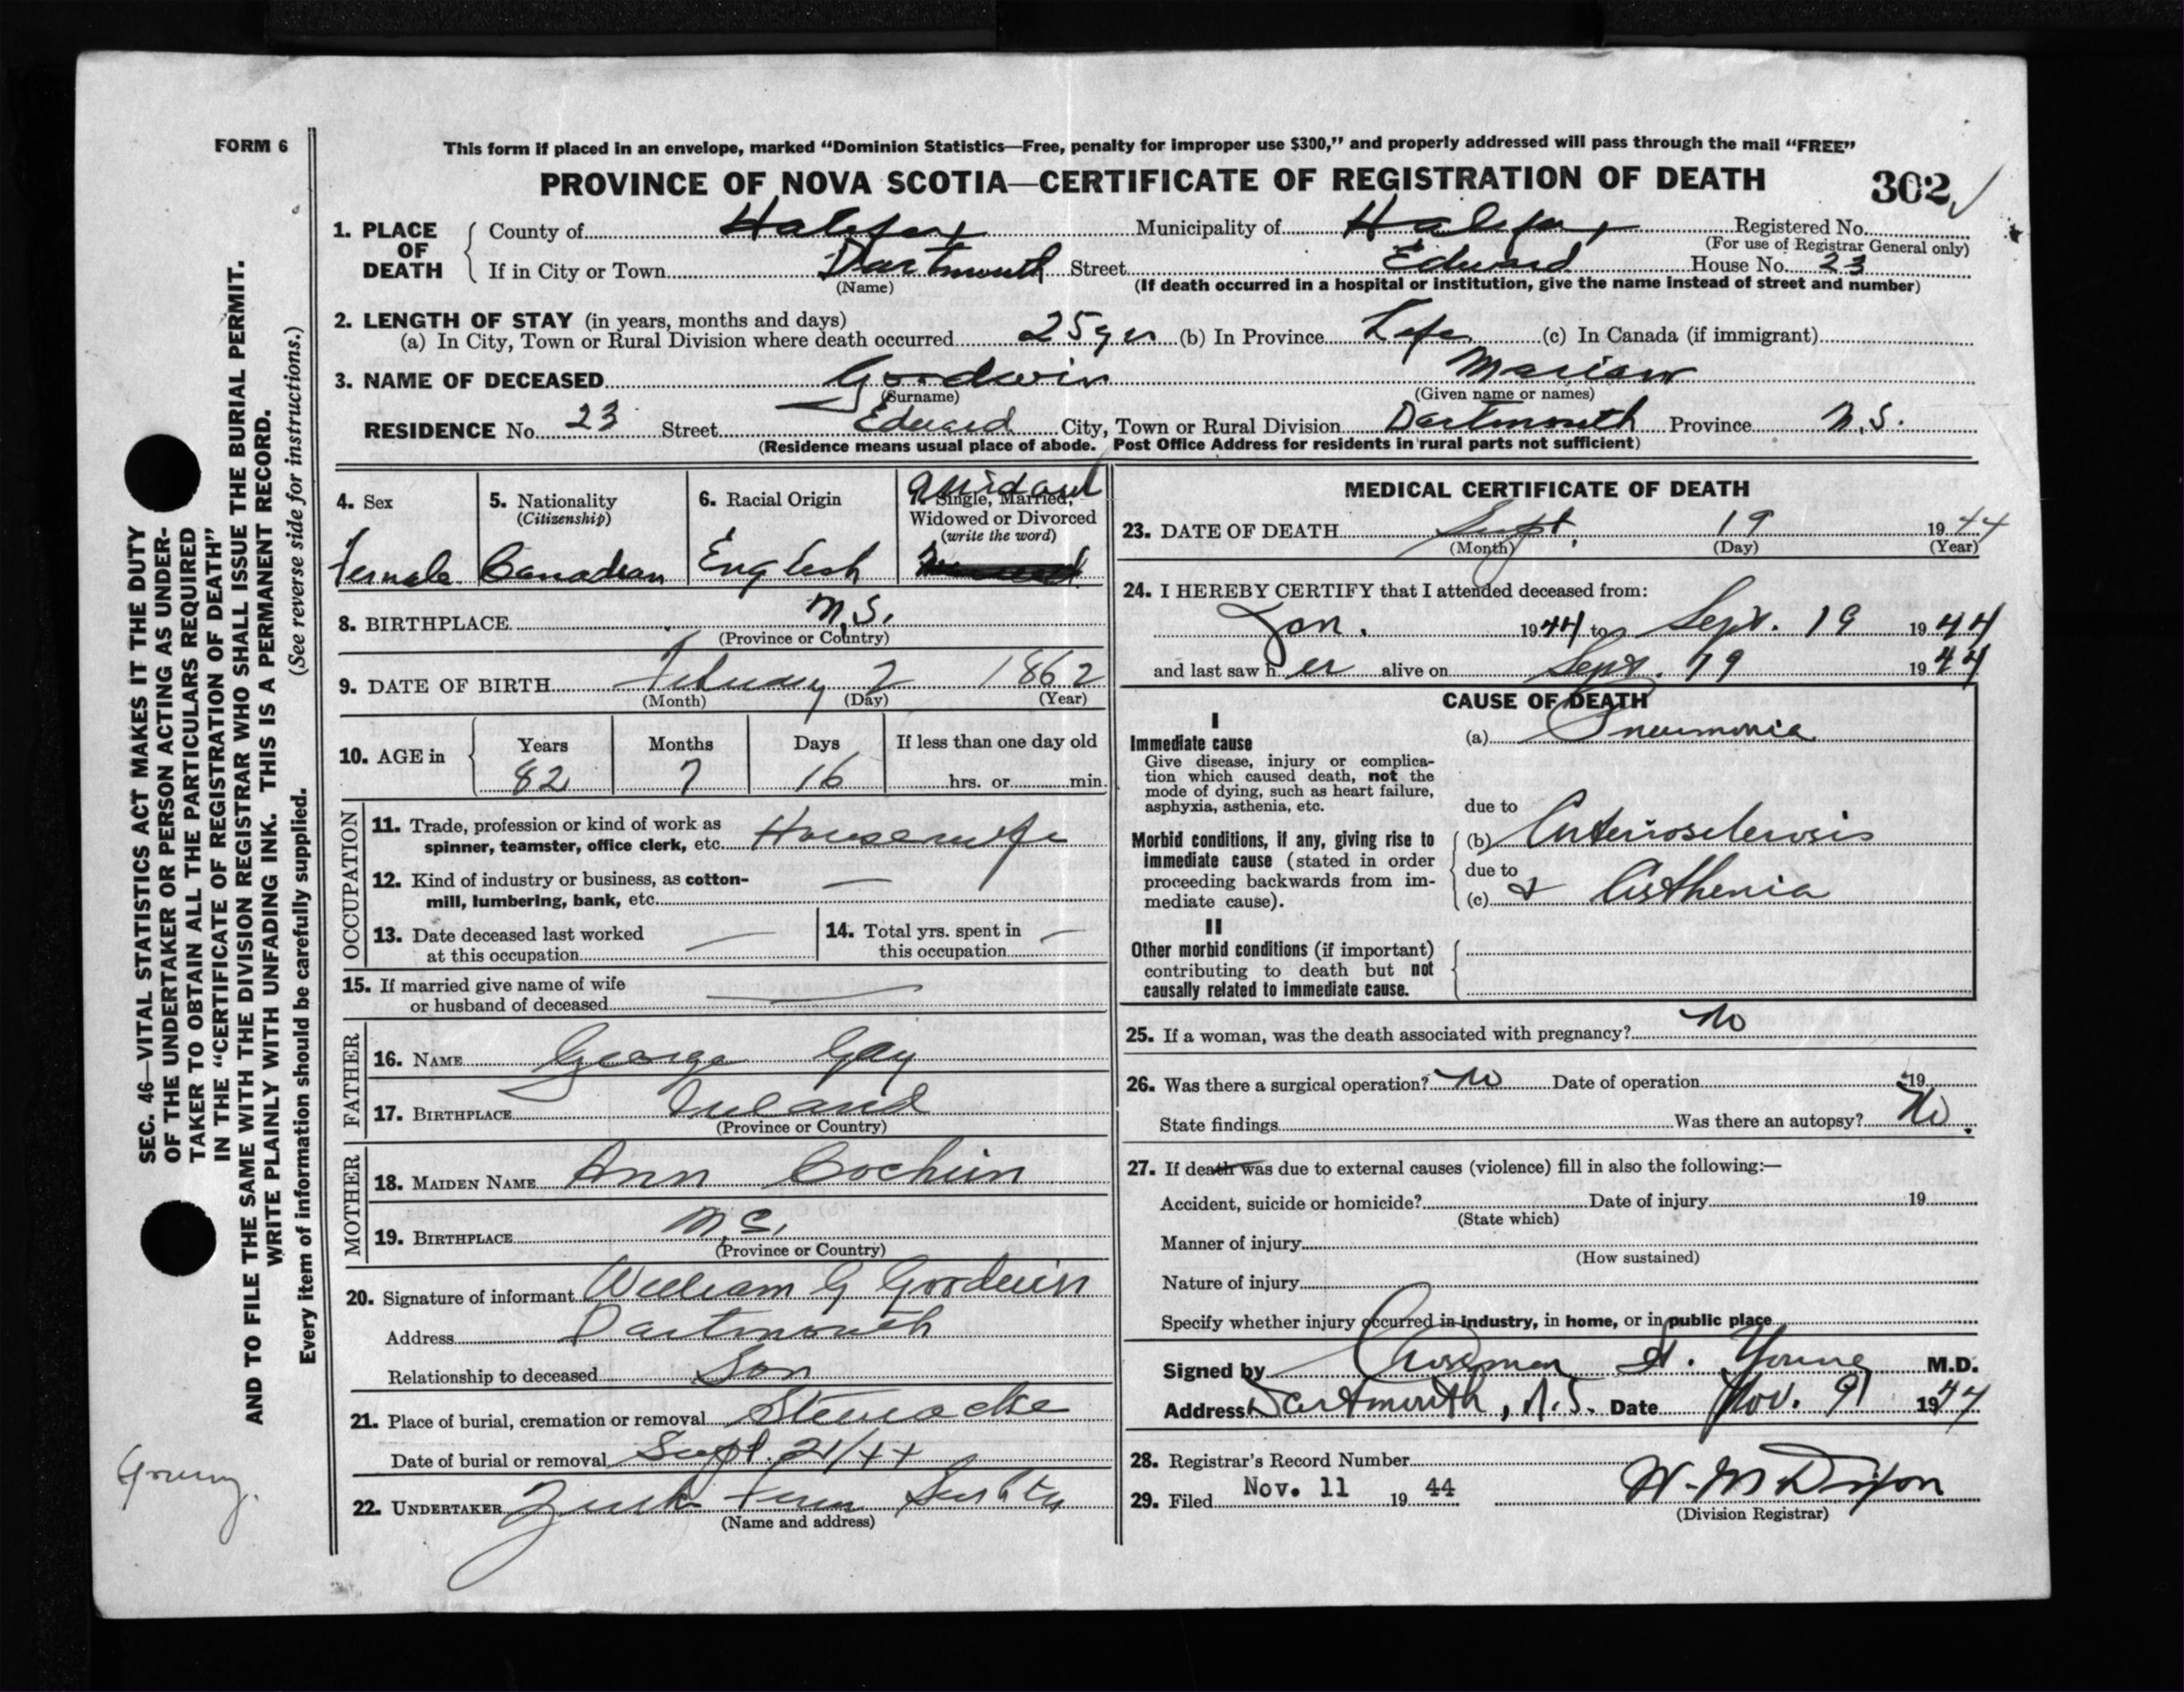 FORM 6
This form if placed in an envelope, marked "Dominion Statistics—Free, penalty for improper use $300," and properly addressed will pass through the mail "FREE"
PROVINCE OF NOVA SCOTIA—CERTIFICATE OF REGISTRATION OF DEATH 302
1. PLACE OF DEATH
County of Halifax Municipality of Halifax Registered No.
(For use of Registrar General only)
If in City or Town Dartmouth Street Edward House No. 23
(Name) (If death occurred in a hospital or institution, give the name instead of street and number)
2. LENGTH OF STAY (in years, months and days)
(a) In City, Town or Rural Division where death occurred 25 yrs (b) In Province Life (c) In Canada (if immigrant)
3. NAME OF DECEASED Goodwin Marian
(Surname) (Given name or names)
RESIDENCE No. 23 Street Edward City, Town or Rural Division Dartmouth Province N.S.
(Residence means usual place of abode. Post Office Address for residents in rural parts not sufficient)
4. Sex
Female
5. Nationality
(Citizenship)
Canadian
6. Racial Origin
English
7. Single, Married,
Widowed or Divorced
(write the word)
8. BIRTHPLACE N.S.
(Province or Country)
9. DATE OF BIRTH February 2 1862
(Month) (Day) (Year)
10. AGE in
Years Months Days If less than one day old
82 7 16 hrs. or min.
OCCUPATION
11. Trade, profession or kind of work as
spinner, teamster, office clerk, etc. Housewife
12. Kind of industry or business, as cotton-
mill, lumbering, bank, etc. —
13. Date deceased last worked
at this occupation —
14. Total yrs. spent in
this occupation —
15. If married give name of wife
or husband of deceased —
FATHER
16. NAME George Gay
17. BIRTHPLACE Ireland
(Province or Country)
MOTHER
18. MAIDEN NAME Ann
19. BIRTHPLACE N.S.
(Province or Country)
20. Signature of informant William G Goodwin
Address Dartmouth
Relationship to deceased Son
21. Place of burial, cremation or removal
Date of burial or removal Sept. 21/44
22. UNDERTAKER
(Name and address)
MEDICAL CERTIFICATE OF DEATH
23. DATE OF DEATH Sept. 19 1944
(Month) (Day) (Year)
24. I HEREBY CERTIFY that I attended deceased from:
Jan. 1944 to Sept. 19 1944
and last saw her alive on Sept. 19 1944
CAUSE OF DEATH
I
Immediate cause
Give disease, injury or complica-
tion which caused death, not the
mode of dying, such as heart failure,
asphyxia, asthenia, etc.
(a) Pneumonia
due to
Morbid conditions, if any, giving rise to
immediate cause (stated in order
proceeding backwards from im-
mediate cause).
(b) Arteriosclerosis
due to
(c) & Asthenia
II
Other morbid conditions (if important)
contributing to death but not
causally related to immediate cause.
25. If a woman, was the death associated with pregnancy? No
26. Was there a surgical operation? No Date of operation 19
State findings Was there an autopsy? No.
27. If death was due to external causes (violence) fill in also the following:—
Accident, suicide or homicide? Date of injury 19
(State which)
Manner of injury
(How sustained)
Nature of injury
Specify whether injury occurred in industry, in home, or in public place
Signed by H. Young M.D.
Address Dartmouth, N.S. Date Nov. 9 1944
28. Registrar's Record Number
29. Filed Nov. 11 19 44
(Division Registrar)
SEC. 46—VITAL STATISTICS ACT MAKES IT THE DUTY
OF THE UNDERTAKER OR PERSON ACTING AS UNDER-
TAKER TO OBTAIN ALL THE PARTICULARS REQUIRED
IN THE "CERTIFICATE OF REGISTRATION OF DEATH"
AND TO FILE THE SAME WITH THE DIVISION REGISTRAR WHO SHALL ISSUE THE BURIAL PERMIT.
WRITE PLAINLY WITH UNFADING INK. THIS IS A PERMANENT RECORD.
Every item of information should be carefully supplied. (See reverse side for instructions.)